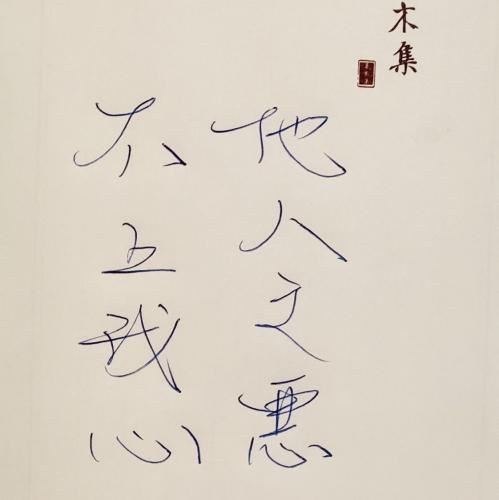 木集
他人之悪
不上我心